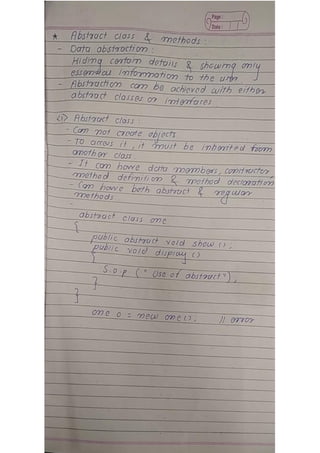 Page :
Date :
* Abstract class & methods :
- Data abstraction :
Hiding certain details & showing only
essential information to the user
- Abstraction can be achieved with either
abstract classes or interfaces
i) Abstract class :
- Can not create objects
- To access it, it must be inherited from
another class
- It can have data members, constructor,
method definition & method declaration
- Can have both abstract & regular
methods
abstract class one
{
public abstract void show();
public void display()
{
S.o.p ("Use of abstract");
}
}
one o = new one(); // error